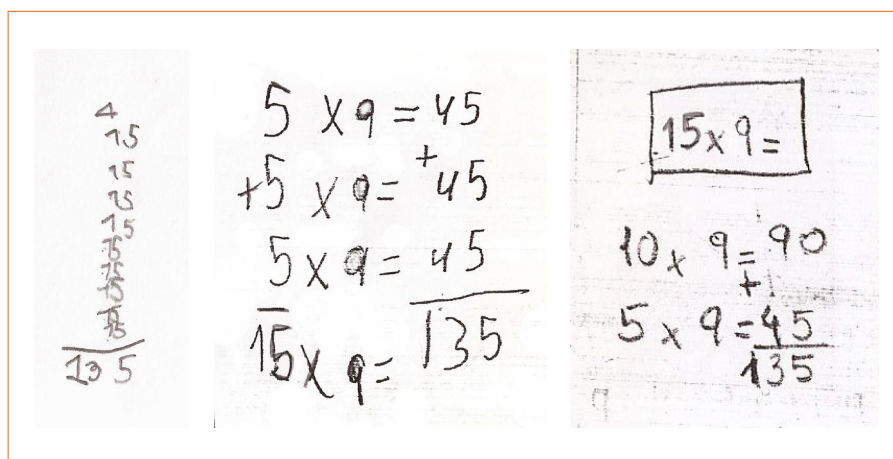 4
15
15
15
15
15
15
15
15
15
135
5 x 9 = 45
+5 x 9 = +45
5 x 9 = 45
15 x 9 = 135
15 x 9 =
10 x 9 = 90
+
5 x 9 = 45
135